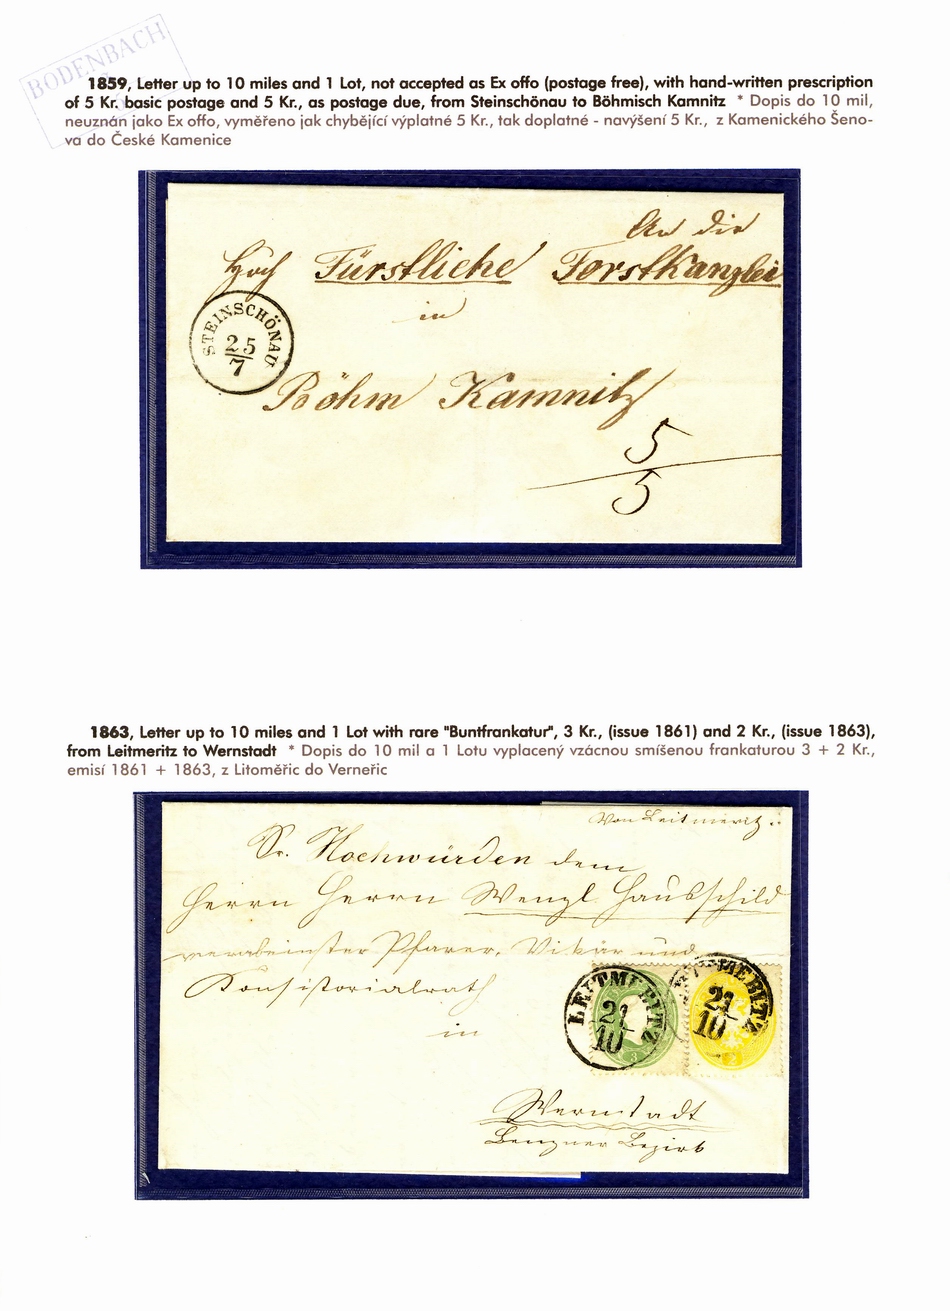 BODENBACH
1859, Letter up to 10 miles and 1 Lot, not accepted as Ex offo (postage free), with hand-written prescription
of 5 Kr. basic postage and 5 Kr., as postage due, from Steinschönau to Böhmisch Kamnitz * Dopis do 10 mil,
neuznán jako Ex offo, vyměřeno jak chybějící výplatné 5 Kr., tak doplatné - navýšení 5 Kr., z Kamenického Šeno-
va do České Kamenice
An die
Hoch Fürstliche Forstkanzlei
in
STEINSCHÖNAU
25
7
Böhm Kamnitz
5
5
1863, Letter up to 10 miles and 1 Lot with rare "Buntfrankatur", 3 Kr., (issue 1861) and 2 Kr., (issue 1863),
from Leitmeritz to Wernstadt * Dopis do 10 mil a 1 Lotu vyplacený vzácnou smíšenou frankaturou 3 + 2 Kr.,
emisí 1861 + 1863, z Litoměřic do Verneřic
Von Leitmeritz.
Sr. Hochwürden dem
Herrn Herrn Wenzl Haubschild
Pfarrer, Vikär und
Konsistorialrath
in
LEITMERITZ
21
10
3
LEITMERITZ
21
10
2
Wernstadt
Bezirk